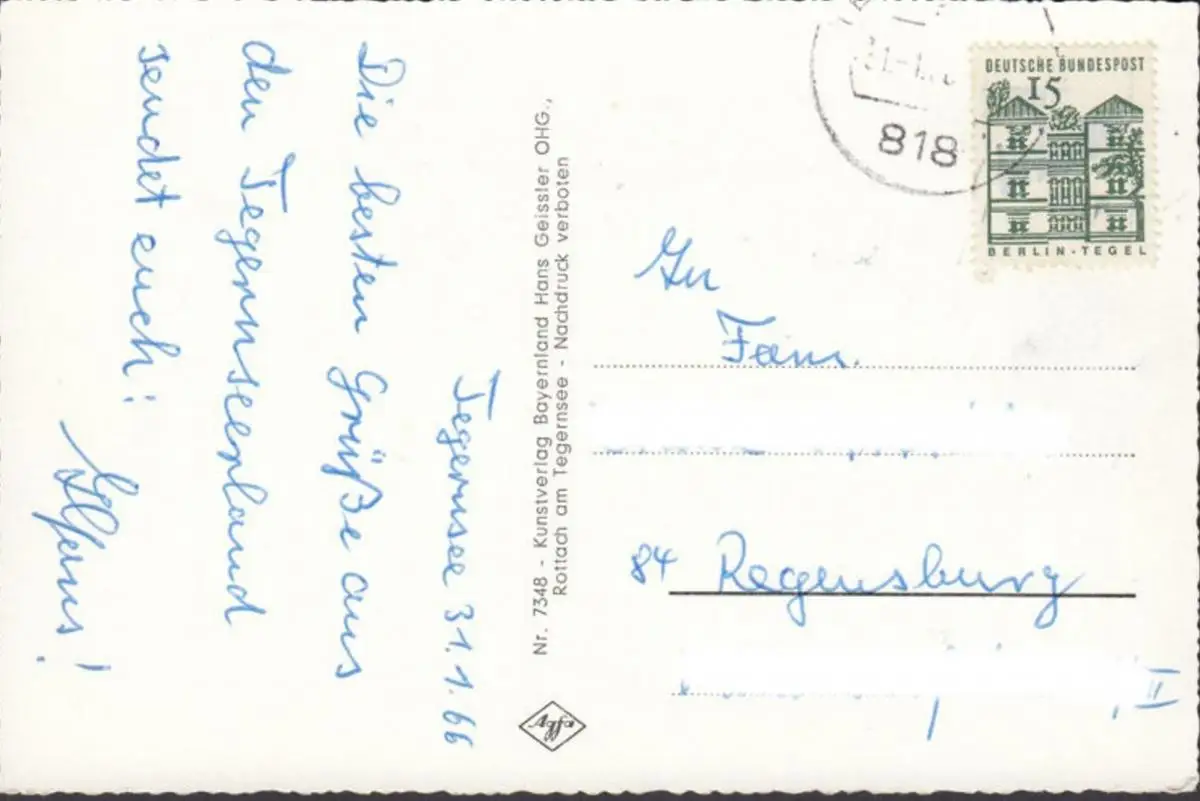 Tegernsee 31.1.66
Die besten Grüße aus
den Tegernseerland
sendet euch:
Hans!
Nr. 7348 - Kunstverlag Bayernland Hans Geissler OHG.,
Rottach am Tegernsee - Nachdruck verboten
818
DEUTSCHE BUNDESPOST
15
BERLIN-TEGEL
An
Fam.
84 Regensburg
II